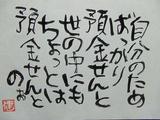 自分のため
ばっかり
預金せんと
世の中にも
ちょっとは
預金せんと
のぉ